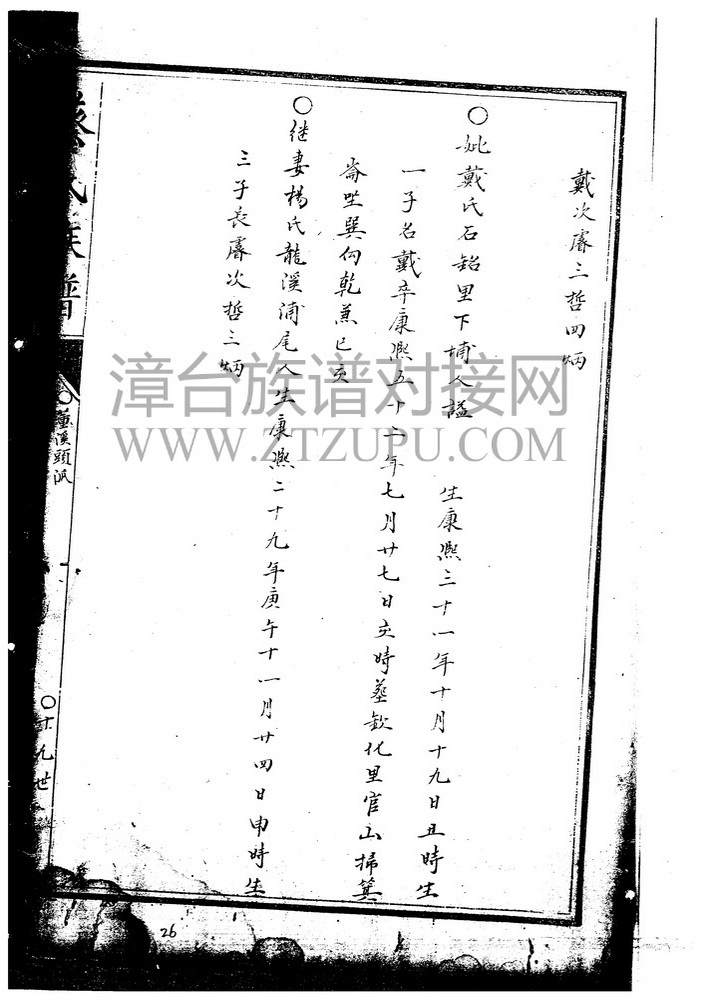 戴次睿三哲四炳
○妣戴氏石鋁里下埔人謚　　生康熙三十一年十月十九日丑時生
一子名戴卒康熙五十二年七月廿七日亥時葬欽化里官山掃箕
崙坐巽向乾兼巳亥
○继妻楊氏龍溪浦尾人生康熙二十九年庚午十一月廿四日申時生
三子長睿次哲三炳
氏族譜
○溪頭派
○十九世
26
漳台族谱对接网
WWW.ZTZUPU.COM